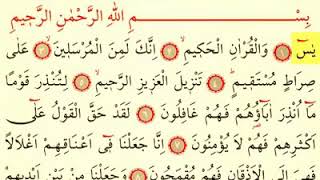 بِسْمِ اللهِ الرَّحْمٰنِ الرَّحِيمِ
يٰسٓ ﴿١﴾ وَالْقُرْاٰنِ الْحَكِيمِ ﴿٢﴾ اِنَّكَ لَمِنَ الْمُرْسَلِينَ ﴿٣﴾ عَلٰى
صِرَاطٍ مُسْتَقِيمٍ ﴿٤﴾ تَنْزِيلَ الْعَزِيزِ الرَّحِيمِ ﴿٥﴾ لِتُنْذِرَ قَوْمًا
مَٓا اُنْذِرَ اٰبَٓاؤُ۬هُمْ فَهُمْ غَافِلُونَ ﴿٦﴾ لَقَدْ حَقَّ الْقَوْلُ عَلٰٓى
اَكْثَرِهِمْ فَهُمْ لَا يُؤْمِنُونَ ﴿٧﴾ اِنَّا جَعَلْنَا فِٓى اَعْنَاقِهِمْ اَغْلَالًا
فَهِىَ اِلَى الْاَذْقَانِ فَهُمْ مُقْمَحُونَ ﴿٨﴾ وَجَعَلْنَا مِنْ بَيْنِ اَيْدِيهِمْ